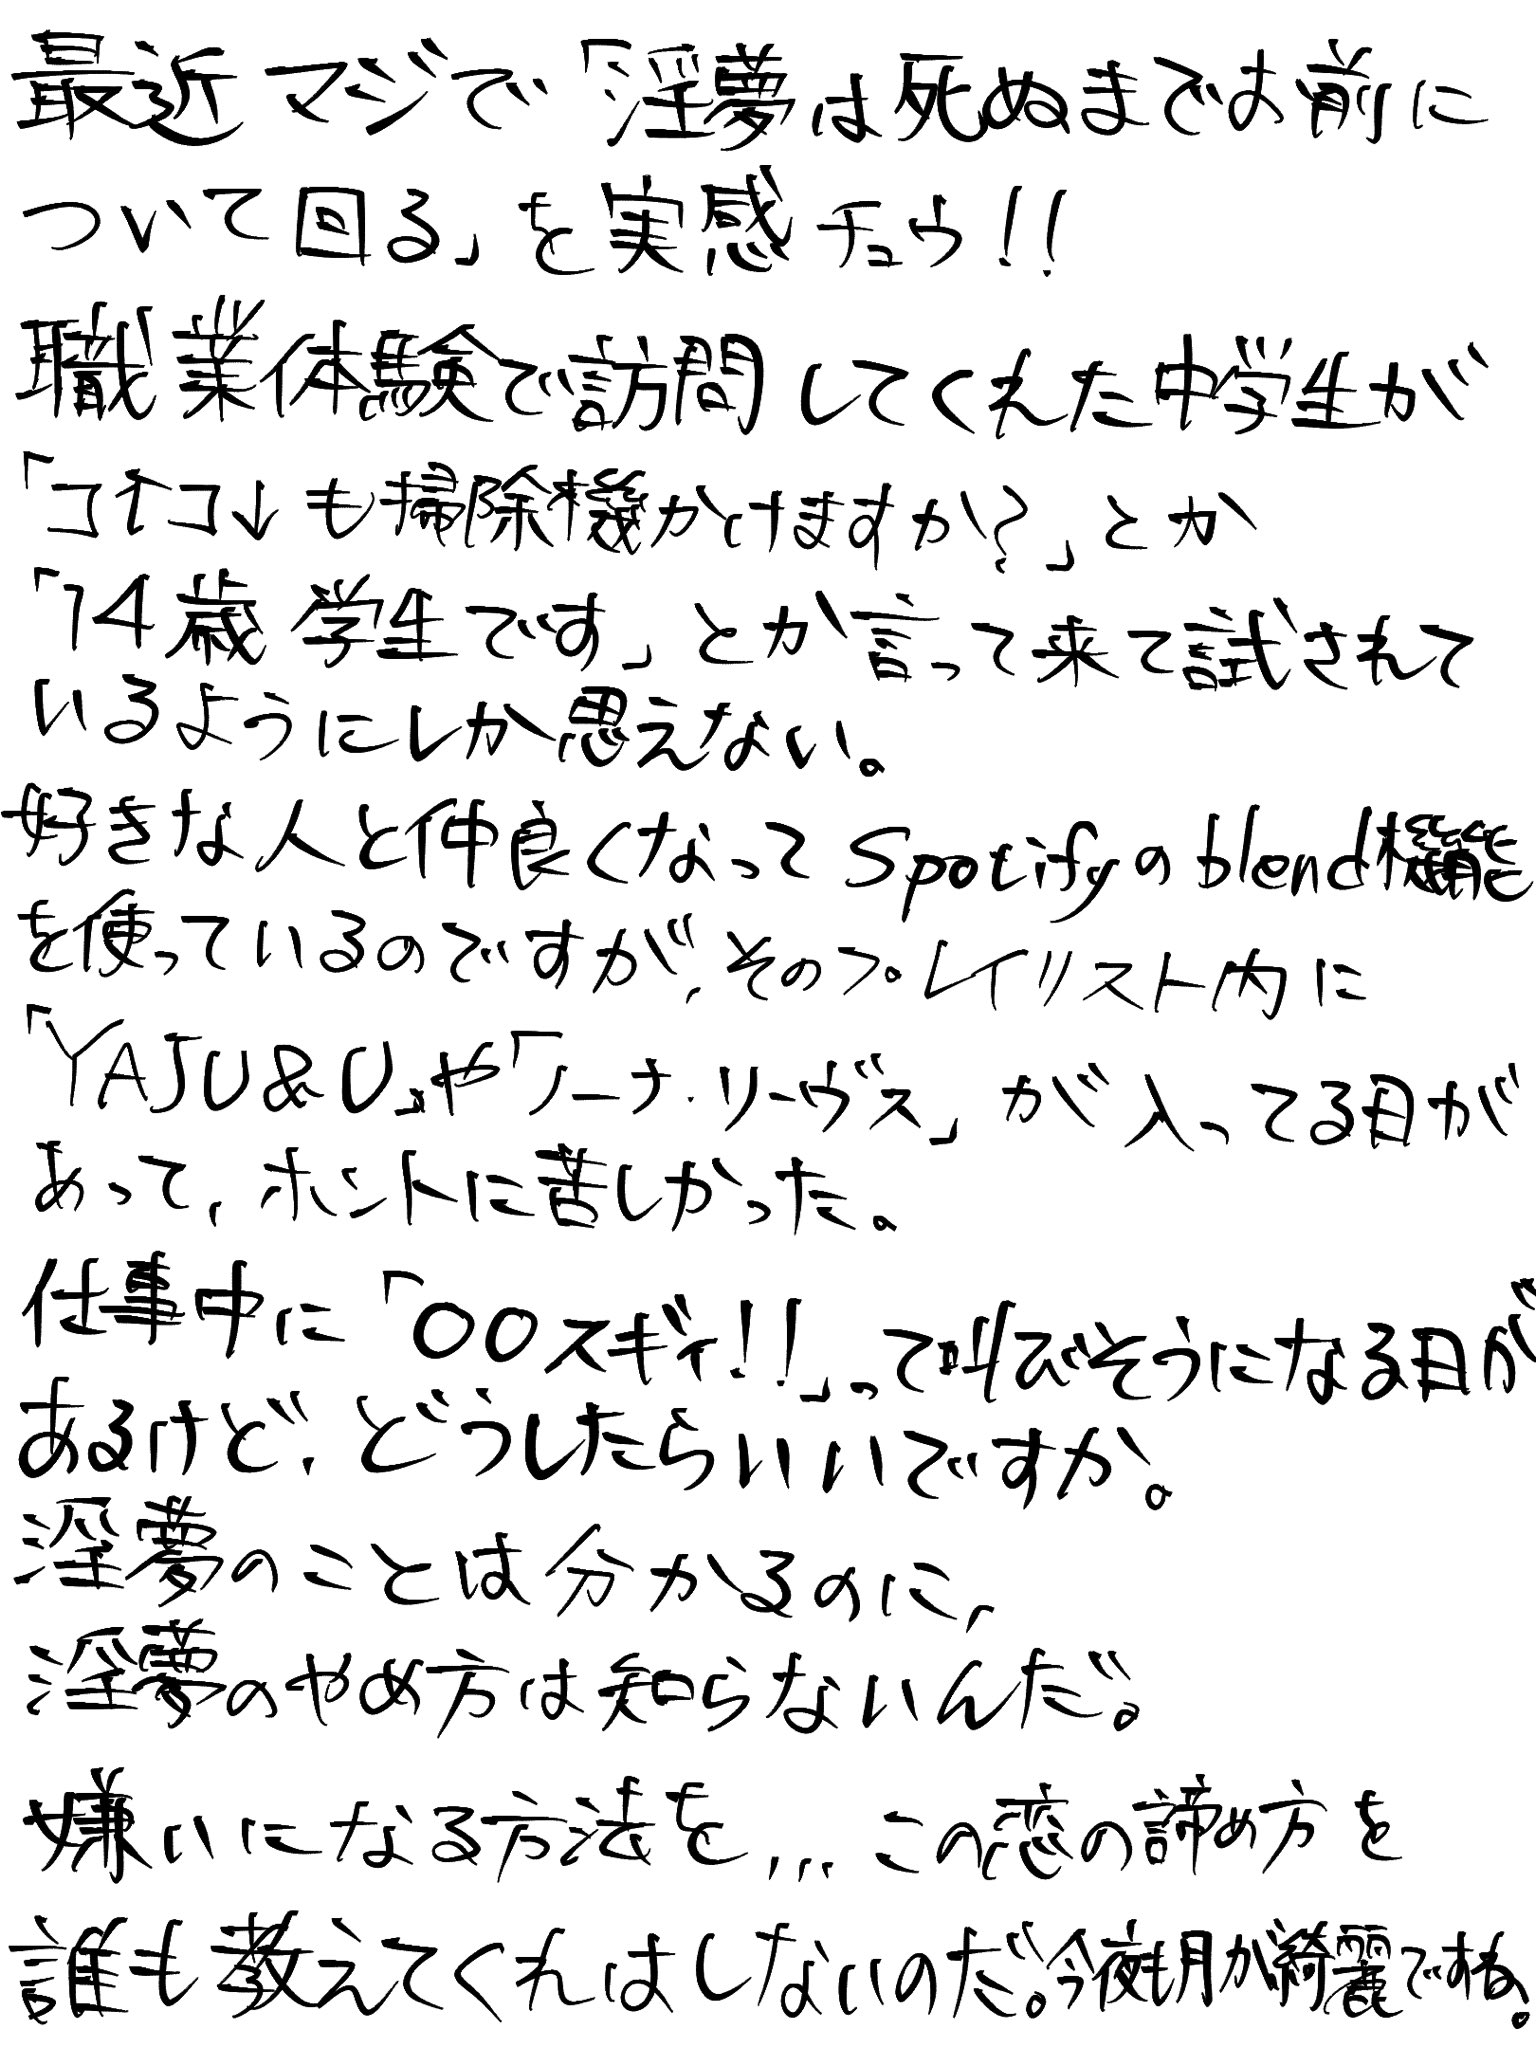 最近マジで「淫夢は死ぬまでお前に
ついて回る」を実感チュウ!!
職業体験で訪問してくれた中学生が
「コ↑コ↓も掃除機かけますか?」とか
「14歳学生です」とか言って来て試されて
いるようにしか思えない。
好きな人と仲良くなってSpotifyのblend機能
を使っているのですが、そのプレイリスト内に
「YAJU&U」や「ノーナ・リーヴス」が入ってる日が
あって、ホントに苦しかった。
仕事中に「〇〇スギィ!!」って叫びそうになる日が
あるけど、どうしたらいいですか。
淫夢のことは分かるのに、
淫夢のやめ方は知らないんだ。
嫌いになる方法を...この恋の諦め方を
誰も教えてくれはしないのだ。今夜も月が綺麗ですね。